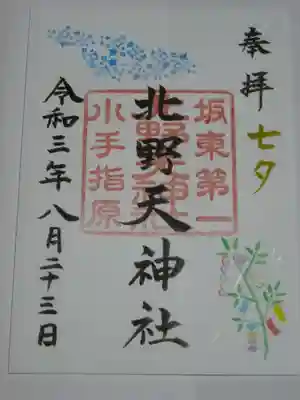 奉拝
七夕
坂東第一
北野天神社
小手指原
令和三年八月二十三日